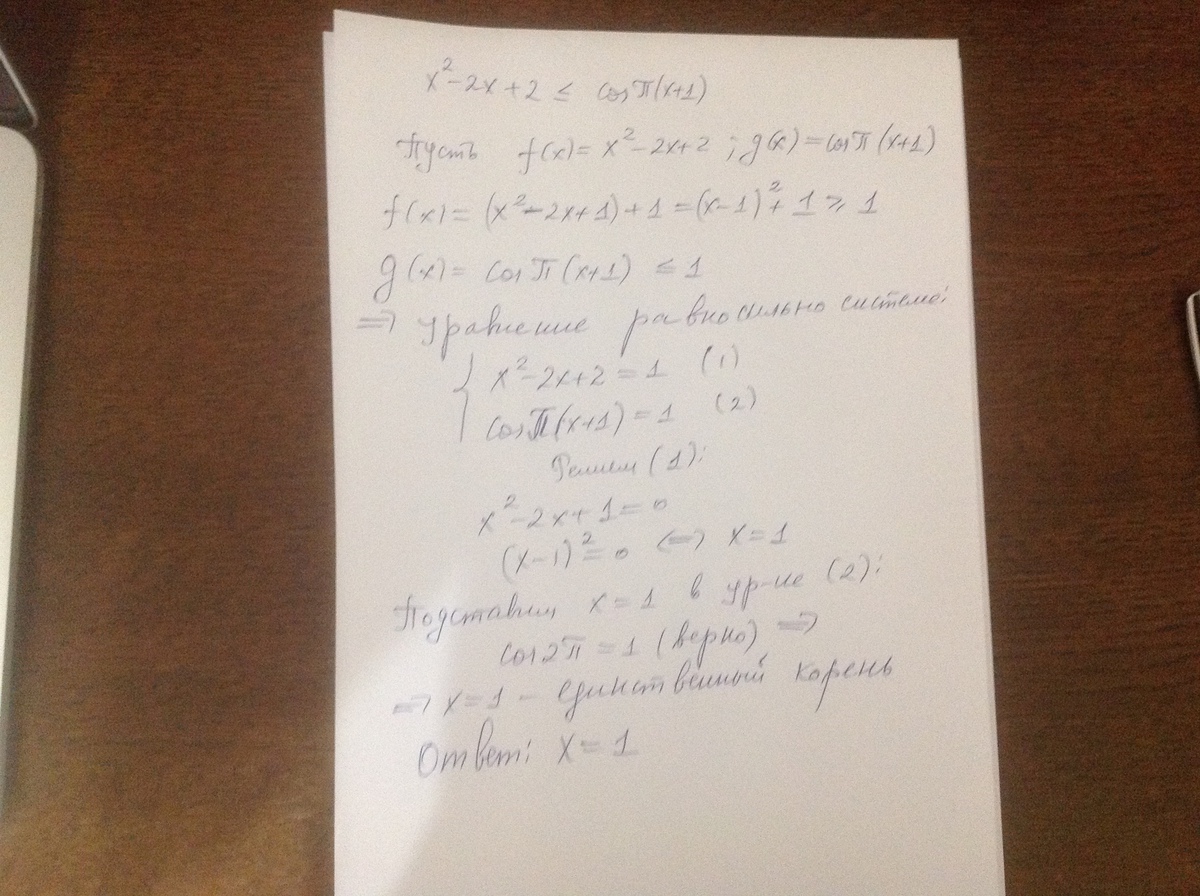 x²-2x+2 ≤ cos π(x+1)
Пусть f(x)= x²-2x+2 ; g(x)=cos π(x+1)
f(x)= (x²-2x+1)+1=(x-1)²+1 ≥ 1
g(x)= cos π(x+1) ≤ 1
⇒ Уравнение равносильно системе:
{ x²-2x+2=1 (1)
cos π(x+1)=1 (2)
Решим (1):
x²-2x+1=0
(x-1)²=0 ⇔ x=1
Подставим x=1 в ур-ие (2):
cos 2π=1 (верно) ⇒
⇒ x=1 - единственный корень
Ответ: x=1